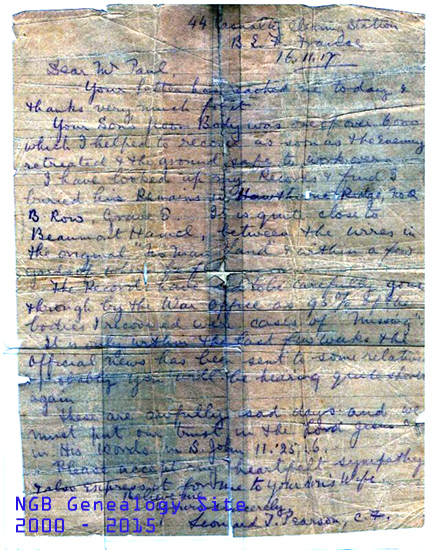 44 Casualty Clearing Station
B. E. F. France
16.11.17
Dear Mr Paul,
Your letter has reached me to day &
thanks very much for it
Your Son's poor Body was one of over 600
which I helped to recover as soon as the Enemy
retreated & the ground safe to work over
I have looked up my Records & find I
buried his Remains in Hawthorne Ridge, No 2
B Row Grave 5 It is quite close to
Beaumont Hamel, between the wires in
the original "no Man's land" within a few
The Records have to be carefully gone
through by the War Office as 95% of the
bodies I recovered were cases of "Missing"
It is only within the last few weeks the
Official news has been sent to some relatives
probably you will be hearing quite shortly
again
These are awfully sad days and we
must put our trust in the Lord Jesus
in His Words in S. John 11. 25, 6.
Please accept my heartfelt sympathy
& also express it for me to your Son's Wife.
Believe me
Yours sincerely
Leonard T. Pearson, C. F.
NGB Genealogy Site
2000 - 2015